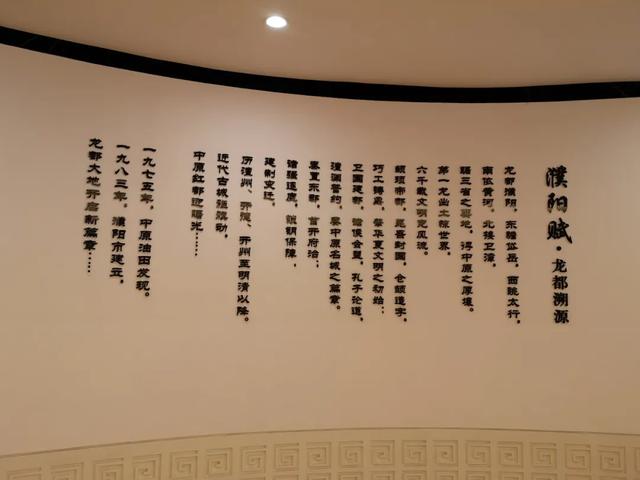 濮阳赋·龙都溯源
龙都濮阳，东襟岱岳，西眺太行，
南依黄河，北接卫漳，
踞三省之要地，得中原之厚壤。
第一龙出土惊世界，
六千载文明定见流。
颛顼帝都，昆吾封国，仓颉造字，
巧工铸鼎，肇华夏文明之初始；
卫国建都，诸侯会盟，孔子论道，
澶渊誓约，奏中原名城之篇章。
秦置东郡，首开府治；
诸强逐鹿，
建制变迁，
历澶州、开德、开州至明清以降。
近代古城
中原红都迎曙光……
一九七五年，中原油田发现。
一九八三年，濮阳市建立，
龙都大地开启新篇章……